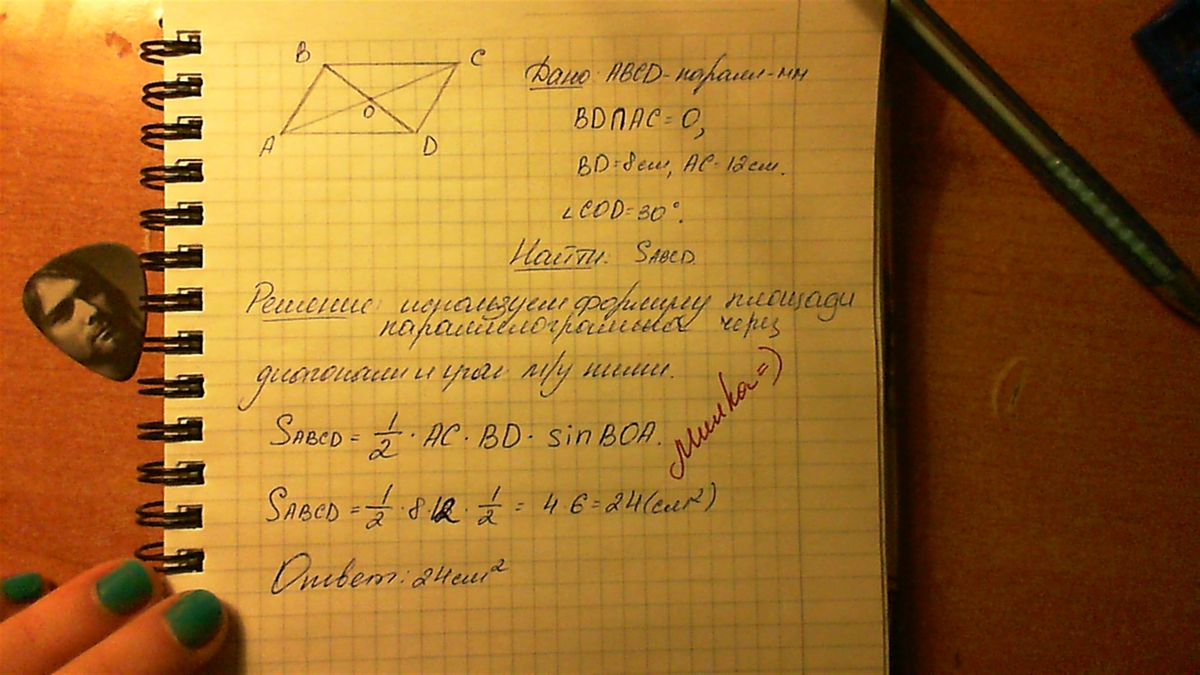 B
C
Дано: ABCD-парал-мм
O
A
D
BD∩AC=O,
BD=8см, AC=12см.
∠COD=30°.
Найти: SABCD.
Решение: используем формулу площади
параллелограмма через
диагонали и угол м/у ними.
SABCD = 1/2 · AC · BD · sin BOA.
Милка=)
SABCD = 1/2 · 8·12 · 1/2 = 4·6=24(см²)
Ответ: 24см²